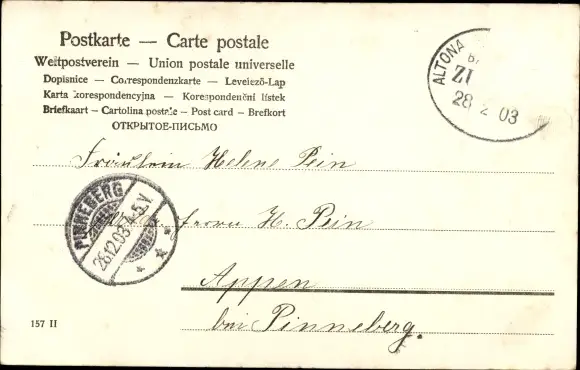 Postkarte — Carte postale
Weltpostverein — Union postale universelle
Dopisnice — Correspondenzkarte — Levelező-Lap
Karta korespondencyjna — Korespondenční lístek
Briefkaart — Cartolina postale — Post card — Brefkort
ОТКРЫТОЕ ПИСЬМО
ALTONA
ZU
28 2 03
Fräulein Helene Pein
PINNEBERG
26.12.03.4-5.V.
Herrn H. Pein
Appen
bei Pinneberg.
157 II